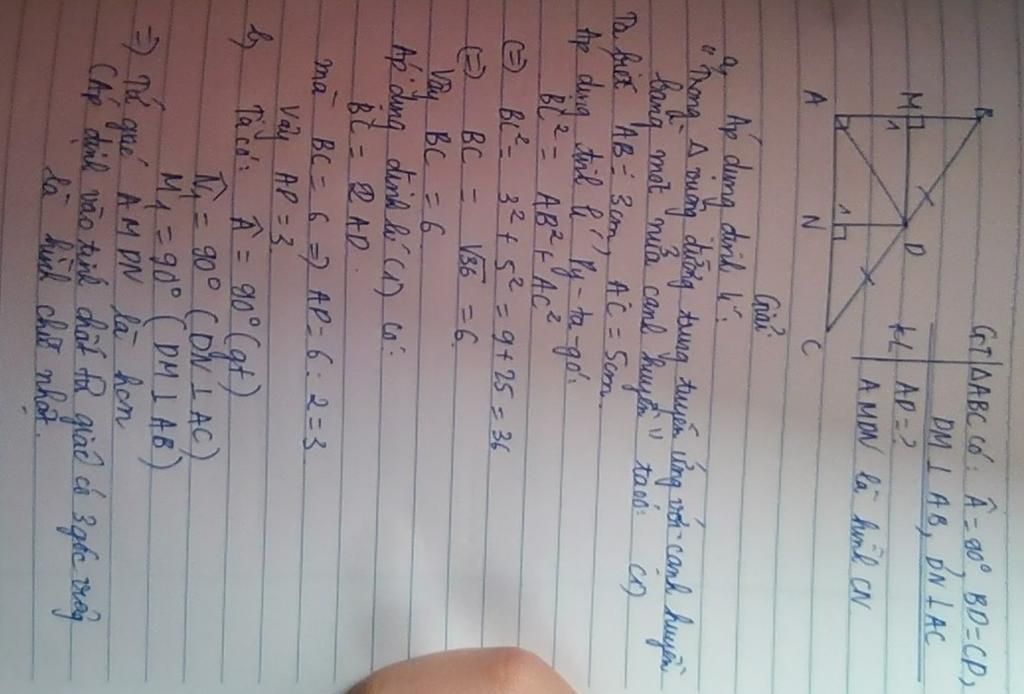 B
M
1
D
A
1
N
C
GT | ΔABC có: Â = 90° BD = CD,
DM ⊥ AB, DN ⊥ AC
KL | AD = ?
AMDN là hình CN
Giải:
a, Áp dụng định lí:
" Trong Δ vuông đường trung tuyến ứng với cạnh huyền
bằng một nửa cạnh huyền " ta có: (1)
Ta biết AB = 3cm, AC = 5cm.
Áp dụng định lí " Py-ta-go:
BC² = AB² + AC²
(=) BC² = 3² + 5² = 9 + 25 = 36
(=) BC = √36 = 6.
Vậy BC = 6
Áp dụng định lí (1) có:
BC = 2 AD.
mà BC = 6 => AD = 6 : 2 = 3
Vậy AD = 3.
b, Ta có: Â = 90° (gt)
N̂₁ = 90° (DN ⊥ AC)
M̂₁ = 90° (DM ⊥ AB)
=) Tứ giác AMDN là hcn
(Áp định vào tính chất tứ giác có 3 góc vuông
là hình chữ nhật.